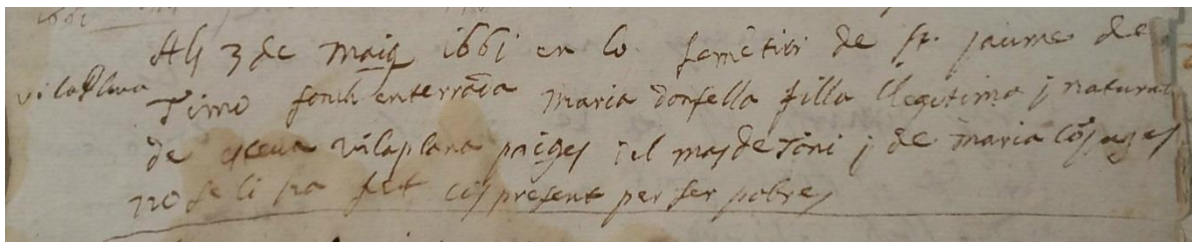 Als 3 de maig 1661 en lo semẽtiri de St. Jaume de
vilaplana
Timo fonch enterrãda Maria donsella filla llegitima j natural
de esteva vilaplana pages del mas de Toni j de maria cõjuges
no se li ha fet cos present per ser pobres